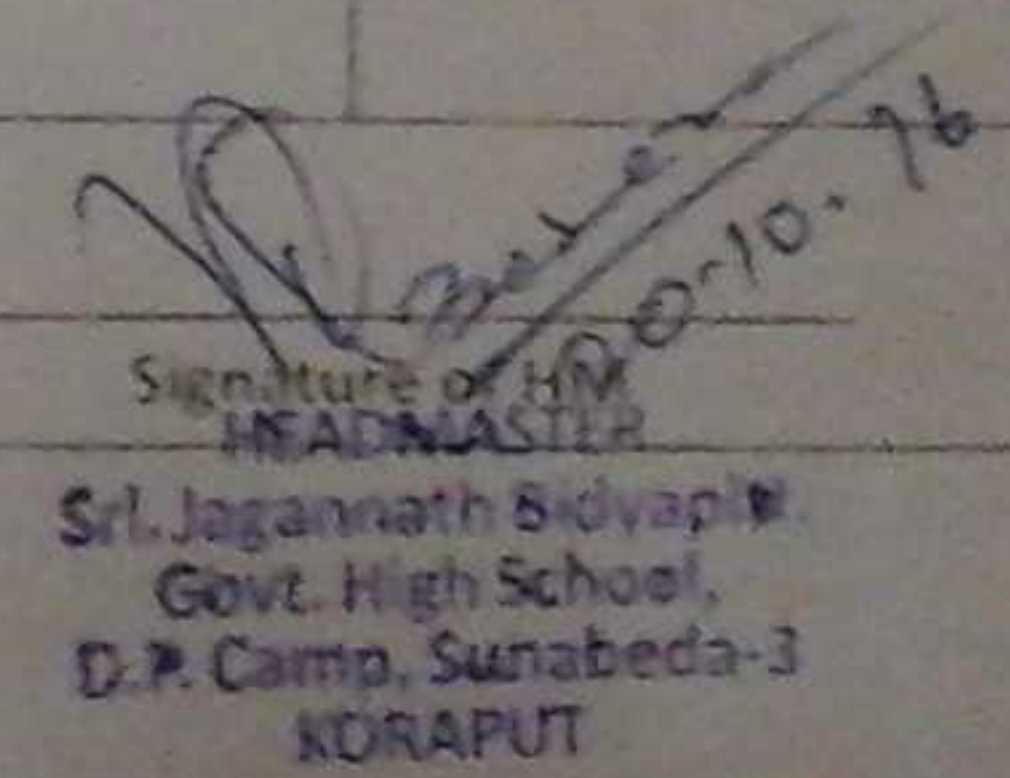 20-10.16
Signature of HM
HEADMASTER
Sri. Jagannath Bidyapith
Govt. High School,
D.P. Camp, Sunabeda-3
KORAPUT